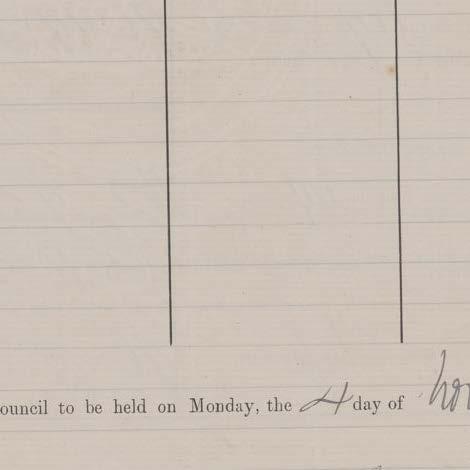 ouncil to be held on Monday, the 4 day of Nov